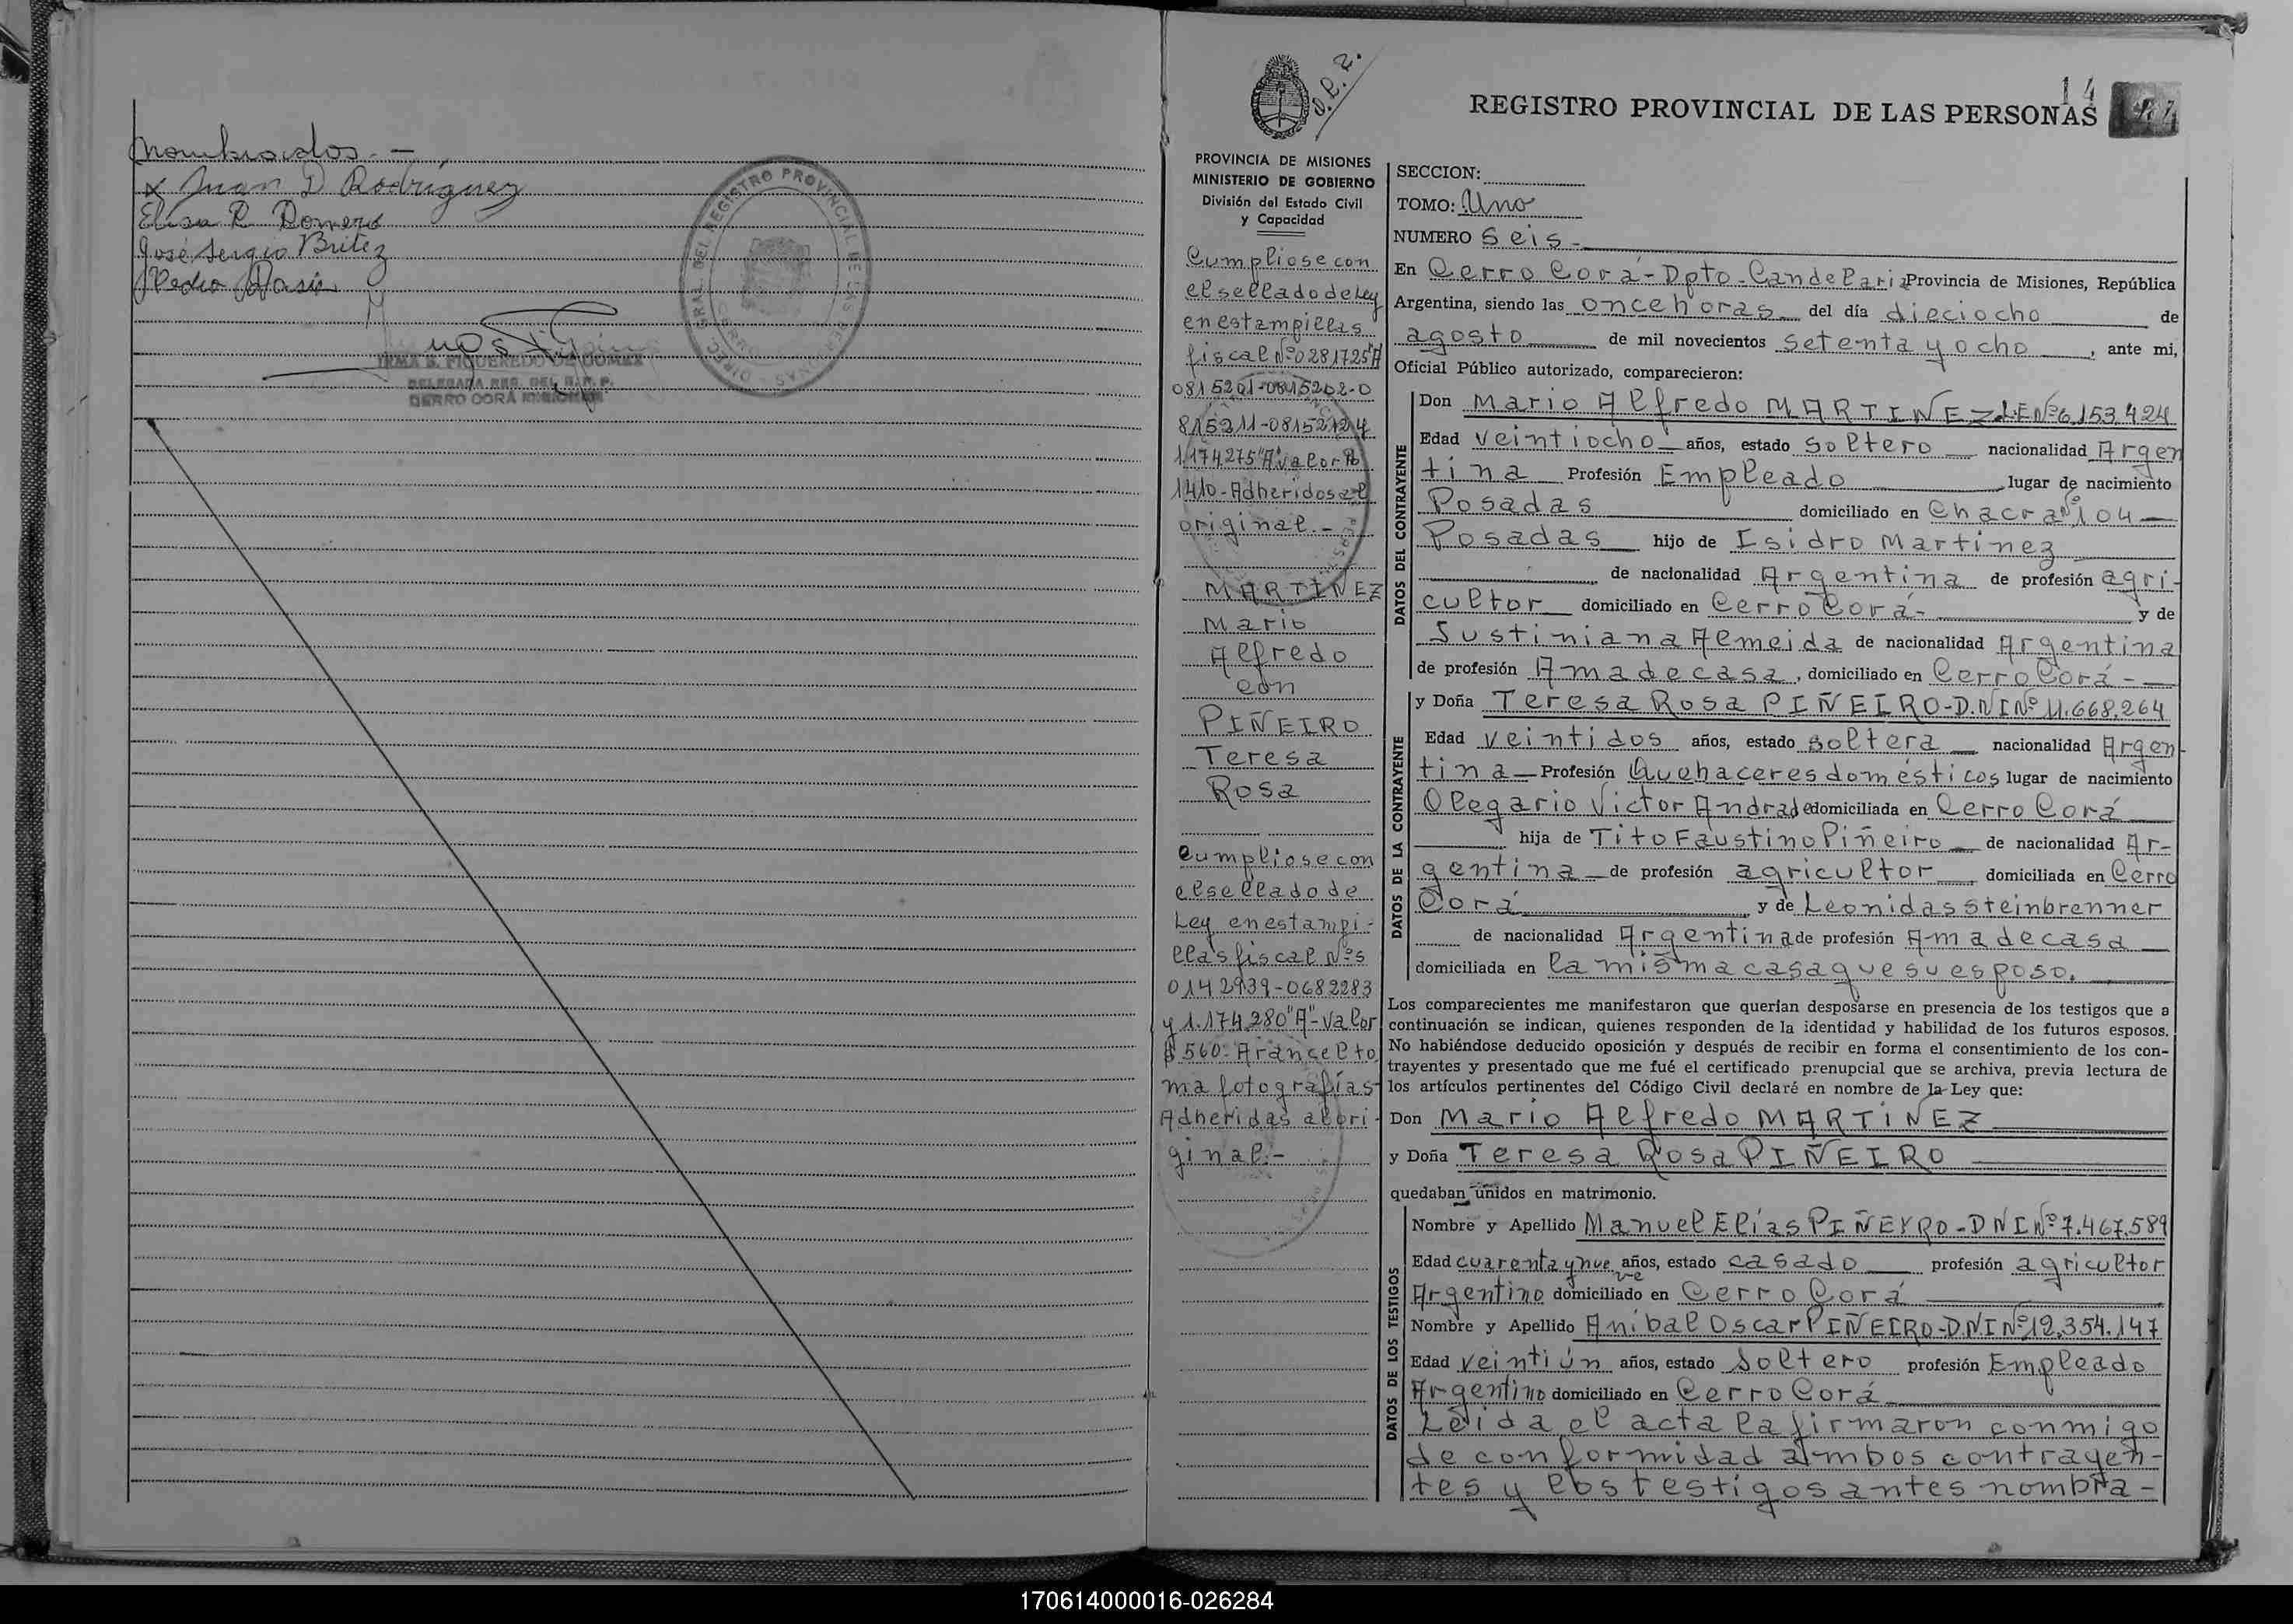 nombrados.-
x Juan D Rodríguez
Elisa R Romero
José Sergio Britez
Pedro
IRMA S. FIGUEREDO DE GOMEZ
DELEGADA REG. DEL R. P. P.
CERRO CORÁ MISIONES
14
REGISTRO PROVINCIAL DE LAS PERSONAS
PROVINCIA DE MISIONES
MINISTERIO DE GOBIERNO
División del Estado Civil
y Capacidad
Cumpliose con
el sellado de Ley
en estampillas
fiscal Nº 0281725"A
0815201-0815202-0
815211-0815212 y
1.174.275"A" valor $
1410-Adheridos al
original.-
MARTINEZ
Mario
Alfredo
con
PIÑEIRO
Teresa
Rosa
Cumpliose con
el sellado de
Ley en estampi-
llas fiscal Nºs
0142939-0682283
y 1.174.280"A"-valor
$ 560-Arancel to
ma fotografías
Adheridas al ori-
ginal.-
SECCION:
TOMO: Uno
NUMERO Seis-
En Cerro Corá-Dpto-Candelaria Provincia de Misiones, República
Argentina, siendo las once horas del día dieciocho de
agosto de mil novecientos setenta y ocho, ante mi,
Oficial Público autorizado, comparecieron:
DATOS DEL CONTRAYENTE
Don Mario Alfredo MARTINEZ-L.E Nº 6.153.424
Edad veintiocho años, estado soltero nacionalidad Argen
tina Profesión Empleado lugar de nacimiento
Posadas domiciliado en Chacra Nº 104-
Posadas hijo de Isidro Martinez
de nacionalidad Argentina de profesión agri-
cultor domiciliado en Cerro Corá- y de
Justiniana Almeida de nacionalidad Argentina
de profesión Ama de casa, domiciliado en Cerro Corá-
DATOS DE LA CONTRAYENTE
y Doña Teresa Rosa PIÑEIRO-D.N I Nº 11.668.264
Edad veintidos años, estado soltera nacionalidad Argen-
tina-Profesión Quehaceres domésticos lugar de nacimiento
Olegario Victor Andrade domiciliada en Cerro Corá
hija de Tito Faustino Piñeiro de nacionalidad Ar-
gentina de profesión agricultor domiciliada en Cerro
Corá y de Leonidas Steinbrenner
de nacionalidad Argentina de profesión Ama de casa
domiciliada en la misma casa que su esposo.
Los comparecientes me manifestaron que querían desposarse en presencia de los testigos que a
continuación se indican, quienes responden de la identidad y habilidad de los futuros esposos.
No habiéndose deducido oposición y después de recibir en forma el consentimiento de los con-
trayentes y presentado que me fué el certificado prenupcial que se archiva, previa lectura de
los artículos pertinentes del Código Civil declaré en nombre de la Ley que:
Don Mario Alfredo MARTINEZ
y Doña Teresa Rosa PIÑEIRO
quedaban unidos en matrimonio.
DATOS DE LOS TESTIGOS
Nombre y Apellido Manuel Elías PIÑEYRO-DNI Nº 7.467.589
Edad cuarenta y nueve años, estado casado profesión agricultor
Argentino domiciliado en Cerro Corá
Nombre y Apellido Anibal Oscar PIÑEIRO-D.N I Nº 12.354.147
Edad veintiún años, estado Soltero profesión Empleado
Argentino domiciliado en Cerro Corá
Leída el acta la firmaron conmigo
de conformidad ambos contrayen-
tes y los testigos antes nombra-
170614000016-026284